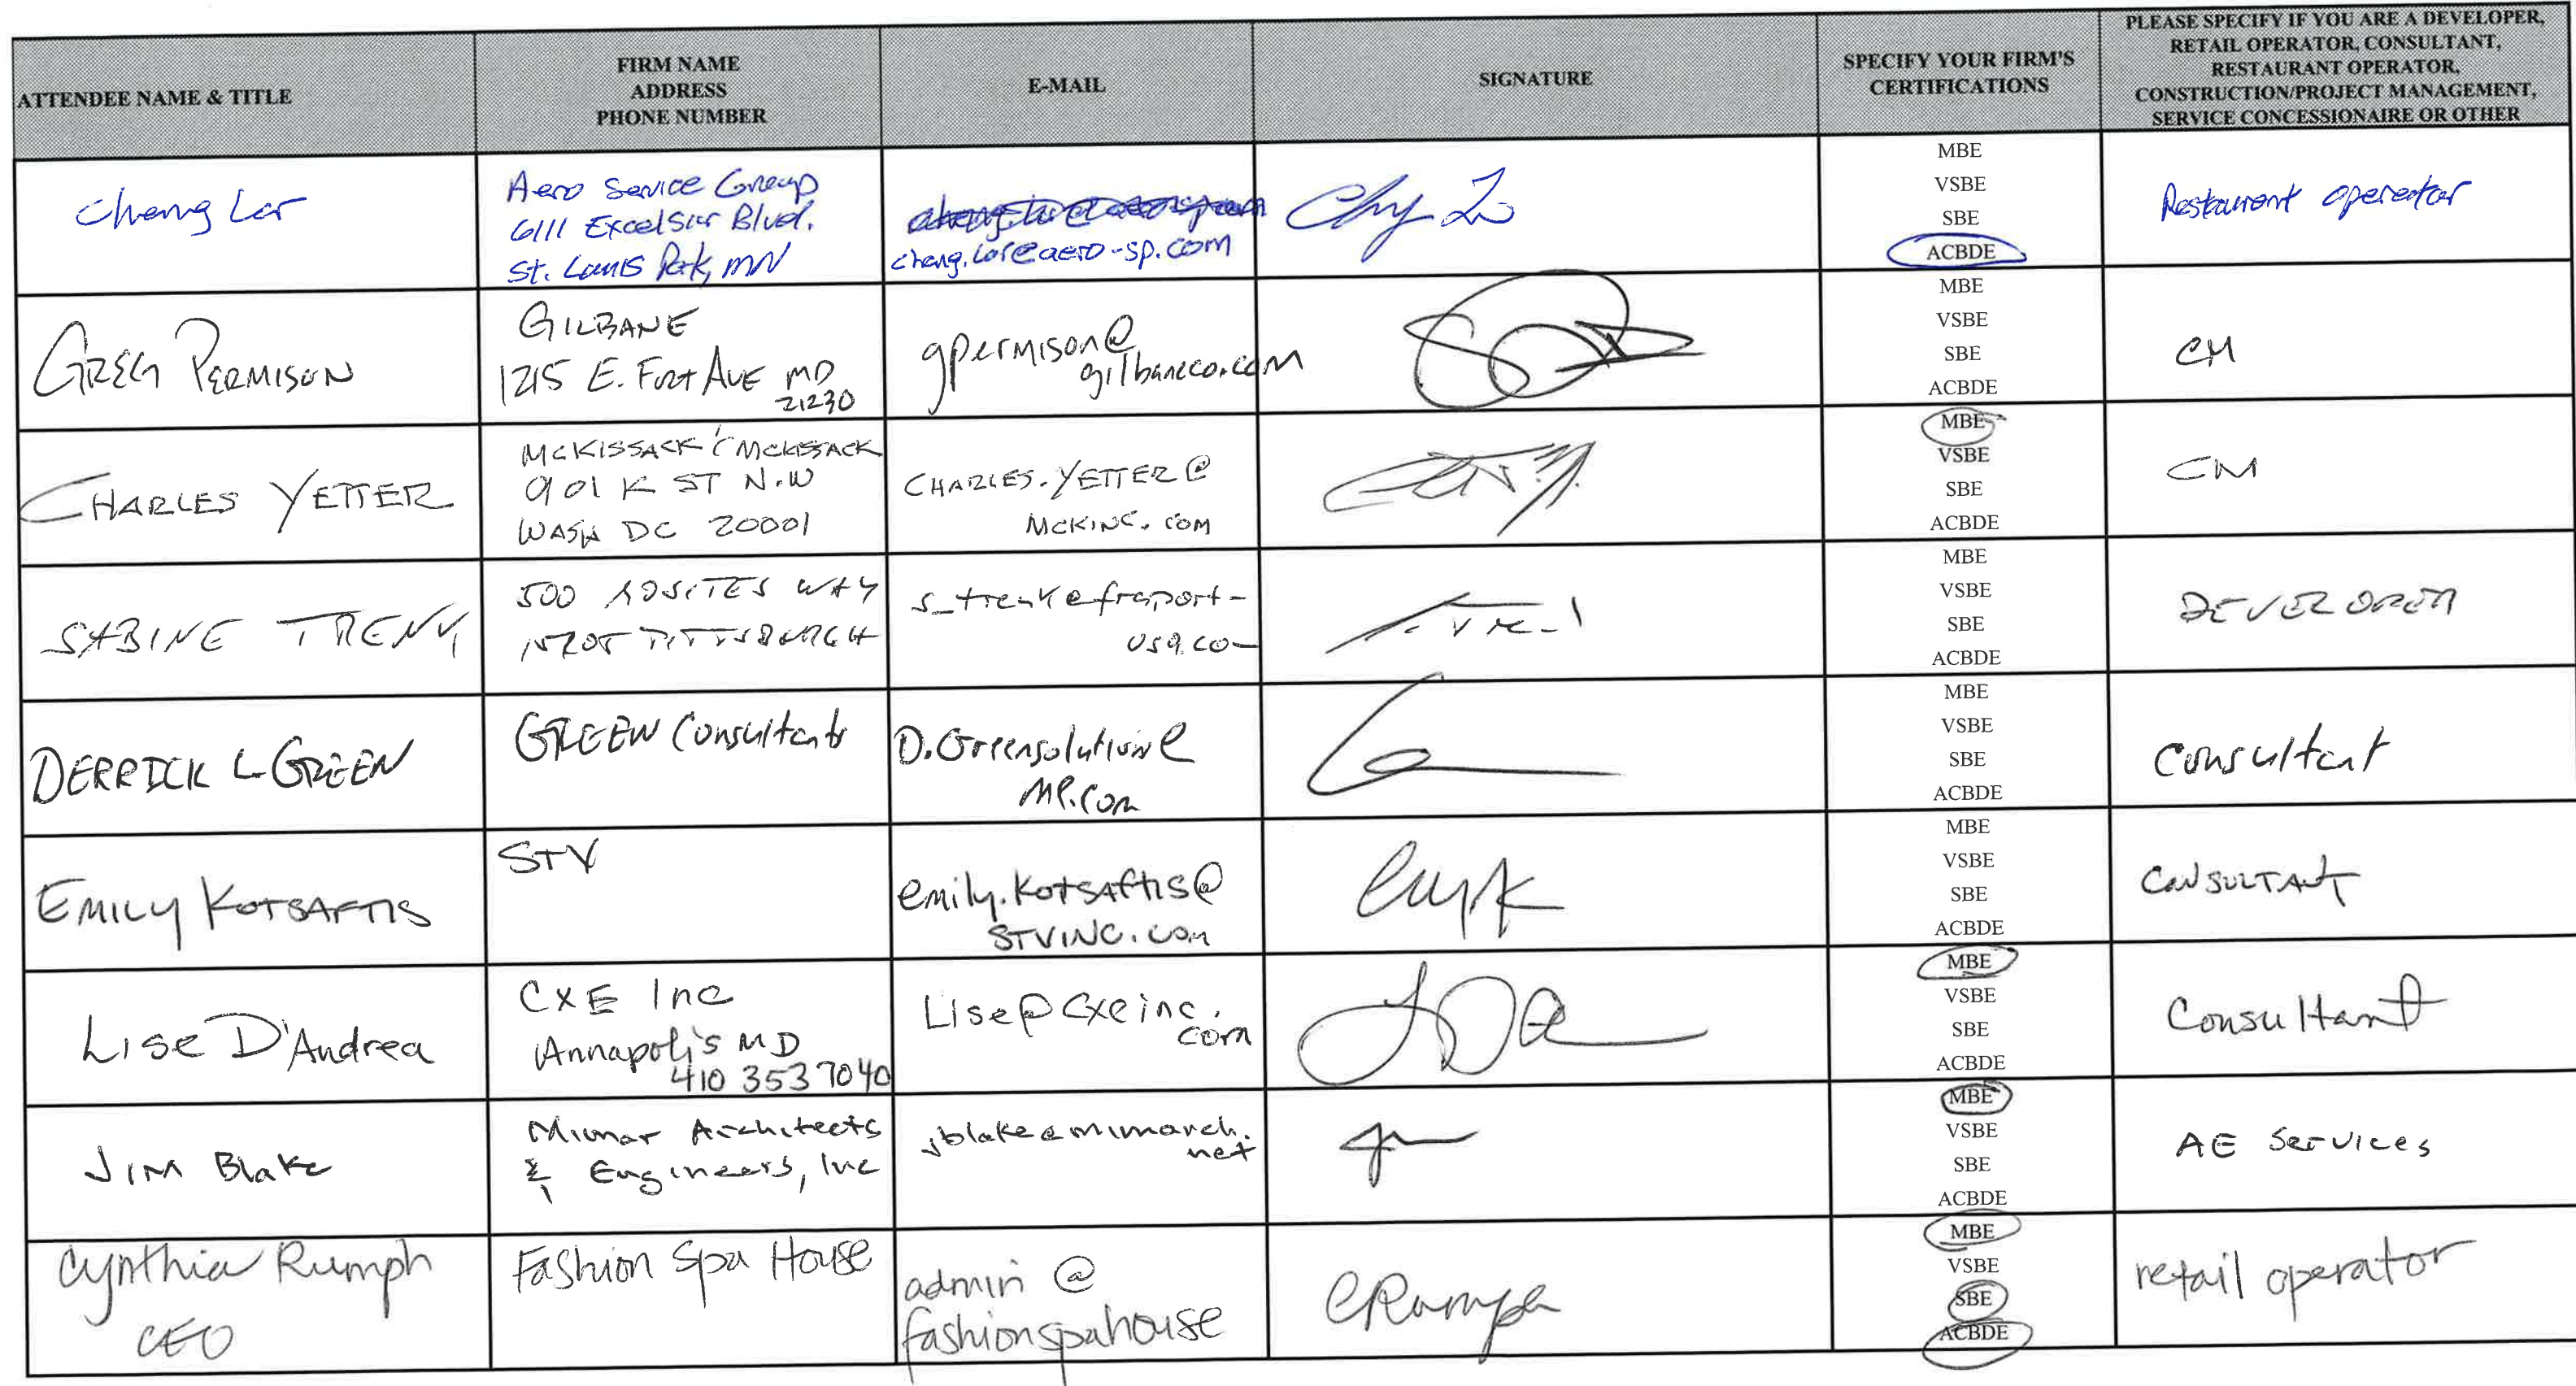 ATTENDEE NAME & TITLE
FIRM NAME
ADDRESS
PHONE NUMBER
E-MAIL
SIGNATURE
SPECIFY YOUR FIRM'S
CERTIFICATIONS
PLEASE SPECIFY IF YOU ARE A DEVELOPER,
RETAIL OPERATOR, CONSULTANT,
RESTAURANT OPERATOR,
CONSTRUCTION/PROJECT MANAGEMENT,
SERVICE CONCESSIONAIRE OR OTHER
Cheng Lor
Aero Service Group
6111 Excelsior Blvd.
St. Louis Park, MN
cheng.lor@aero-sp.com
MBE
VSBE
SBE
ACBDE
Restaurant operator
GREG PERMISON
GILBANE
1215 E. FORT AVE MD
21230
gpermison@
gilbaneco.com
MBE
VSBE
SBE
ACBDE
CM
CHARLES YETTER
MCKISSACK & MCKISSACK
901 K ST N.W
WASH DC 20001
CHARLES.YETTER@
MCKINC.COM
MBE
VSBE
SBE
ACBDE
CM
SABINE TRENK
500 WAY
PITTSBURGH
s_trenk@fraport-
usa.co
MBE
VSBE
SBE
ACBDE
DEVELOPER
DERRICK L GREEN
GREEN Consultants
D.Greensolution@
MBE
VSBE
SBE
ACBDE
Consultant
EMILY KOTSAFTIS
STV
emily.kotsaftis@
STVINC.com
MBE
VSBE
SBE
ACBDE
CONSULTANT
Lise D'Andrea
CXE Inc
Annapolis MD
410 353 7040
Lise@cxeinc.
com
MBE
VSBE
SBE
ACBDE
Consultant
JIM Blake
Mimar Architects
& Engineers, Inc
jblake@mimarch.
net
MBE
VSBE
SBE
ACBDE
AE Services
Cynthia Rumph
CEO
Fashion Spa House
admin @
fashionspahouse
CRumph
MBE
VSBE
SBE
ACBDE
retail operator